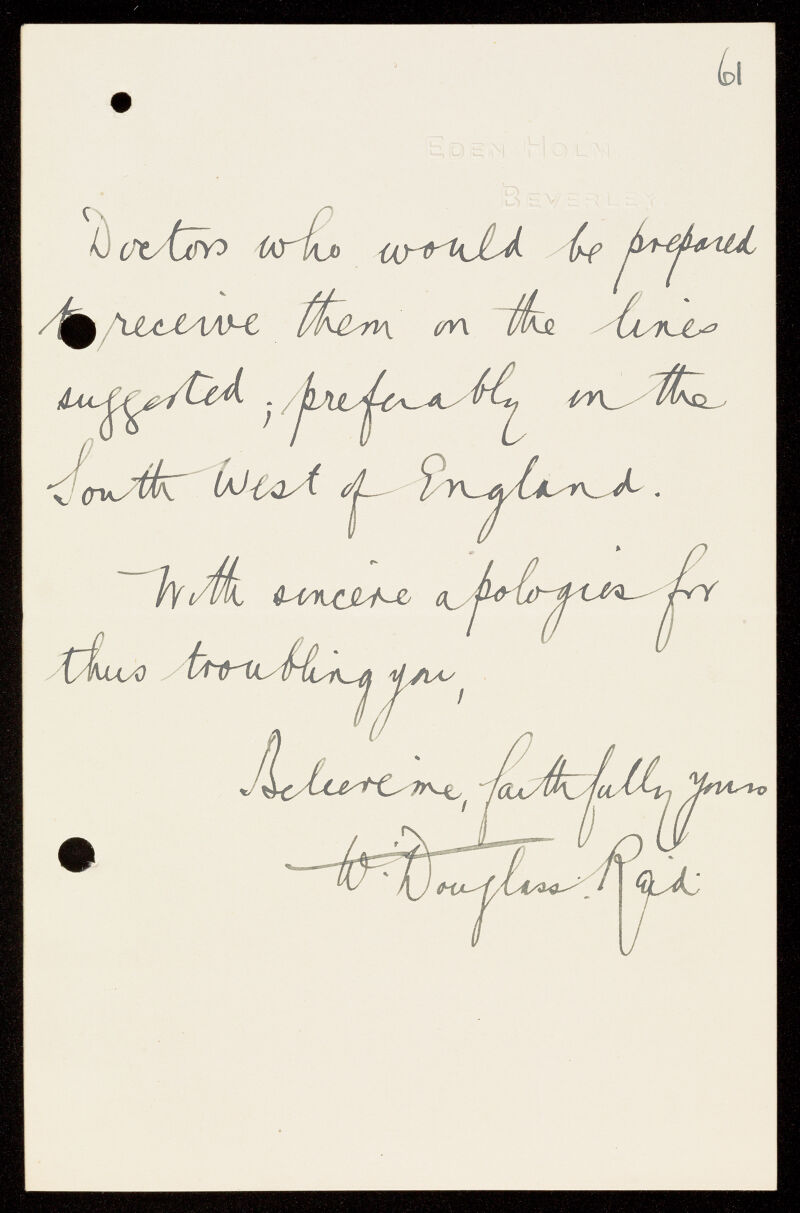 61
EDEN HOLM
BEVERLEY
Doctors who would be prepared
to receive them on the lines
suggested; preferably in the
South West of England.
With sincere apologies for
thus troubling you,
Believe me, faithfully yours
W. Douglass. Reid.